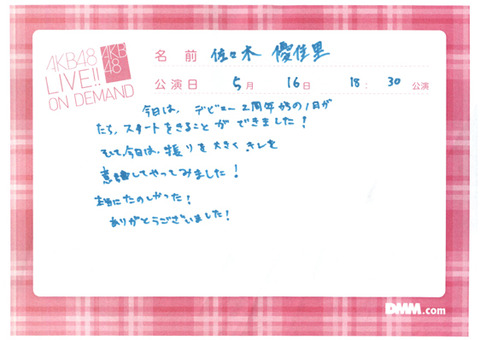 AKB48
LIVE!!
ON DEMAND
AKB
48
名 前 佐々木 優佳里
公演日 5月 16日 18:30 公演
今日は、デビュー2周年から1日が
たち、スタートをきることができました!
そして今日は、振りを大きくキレを
意識してやってみました!
本当にたのしかった!
ありがとうございました!
DMM.com